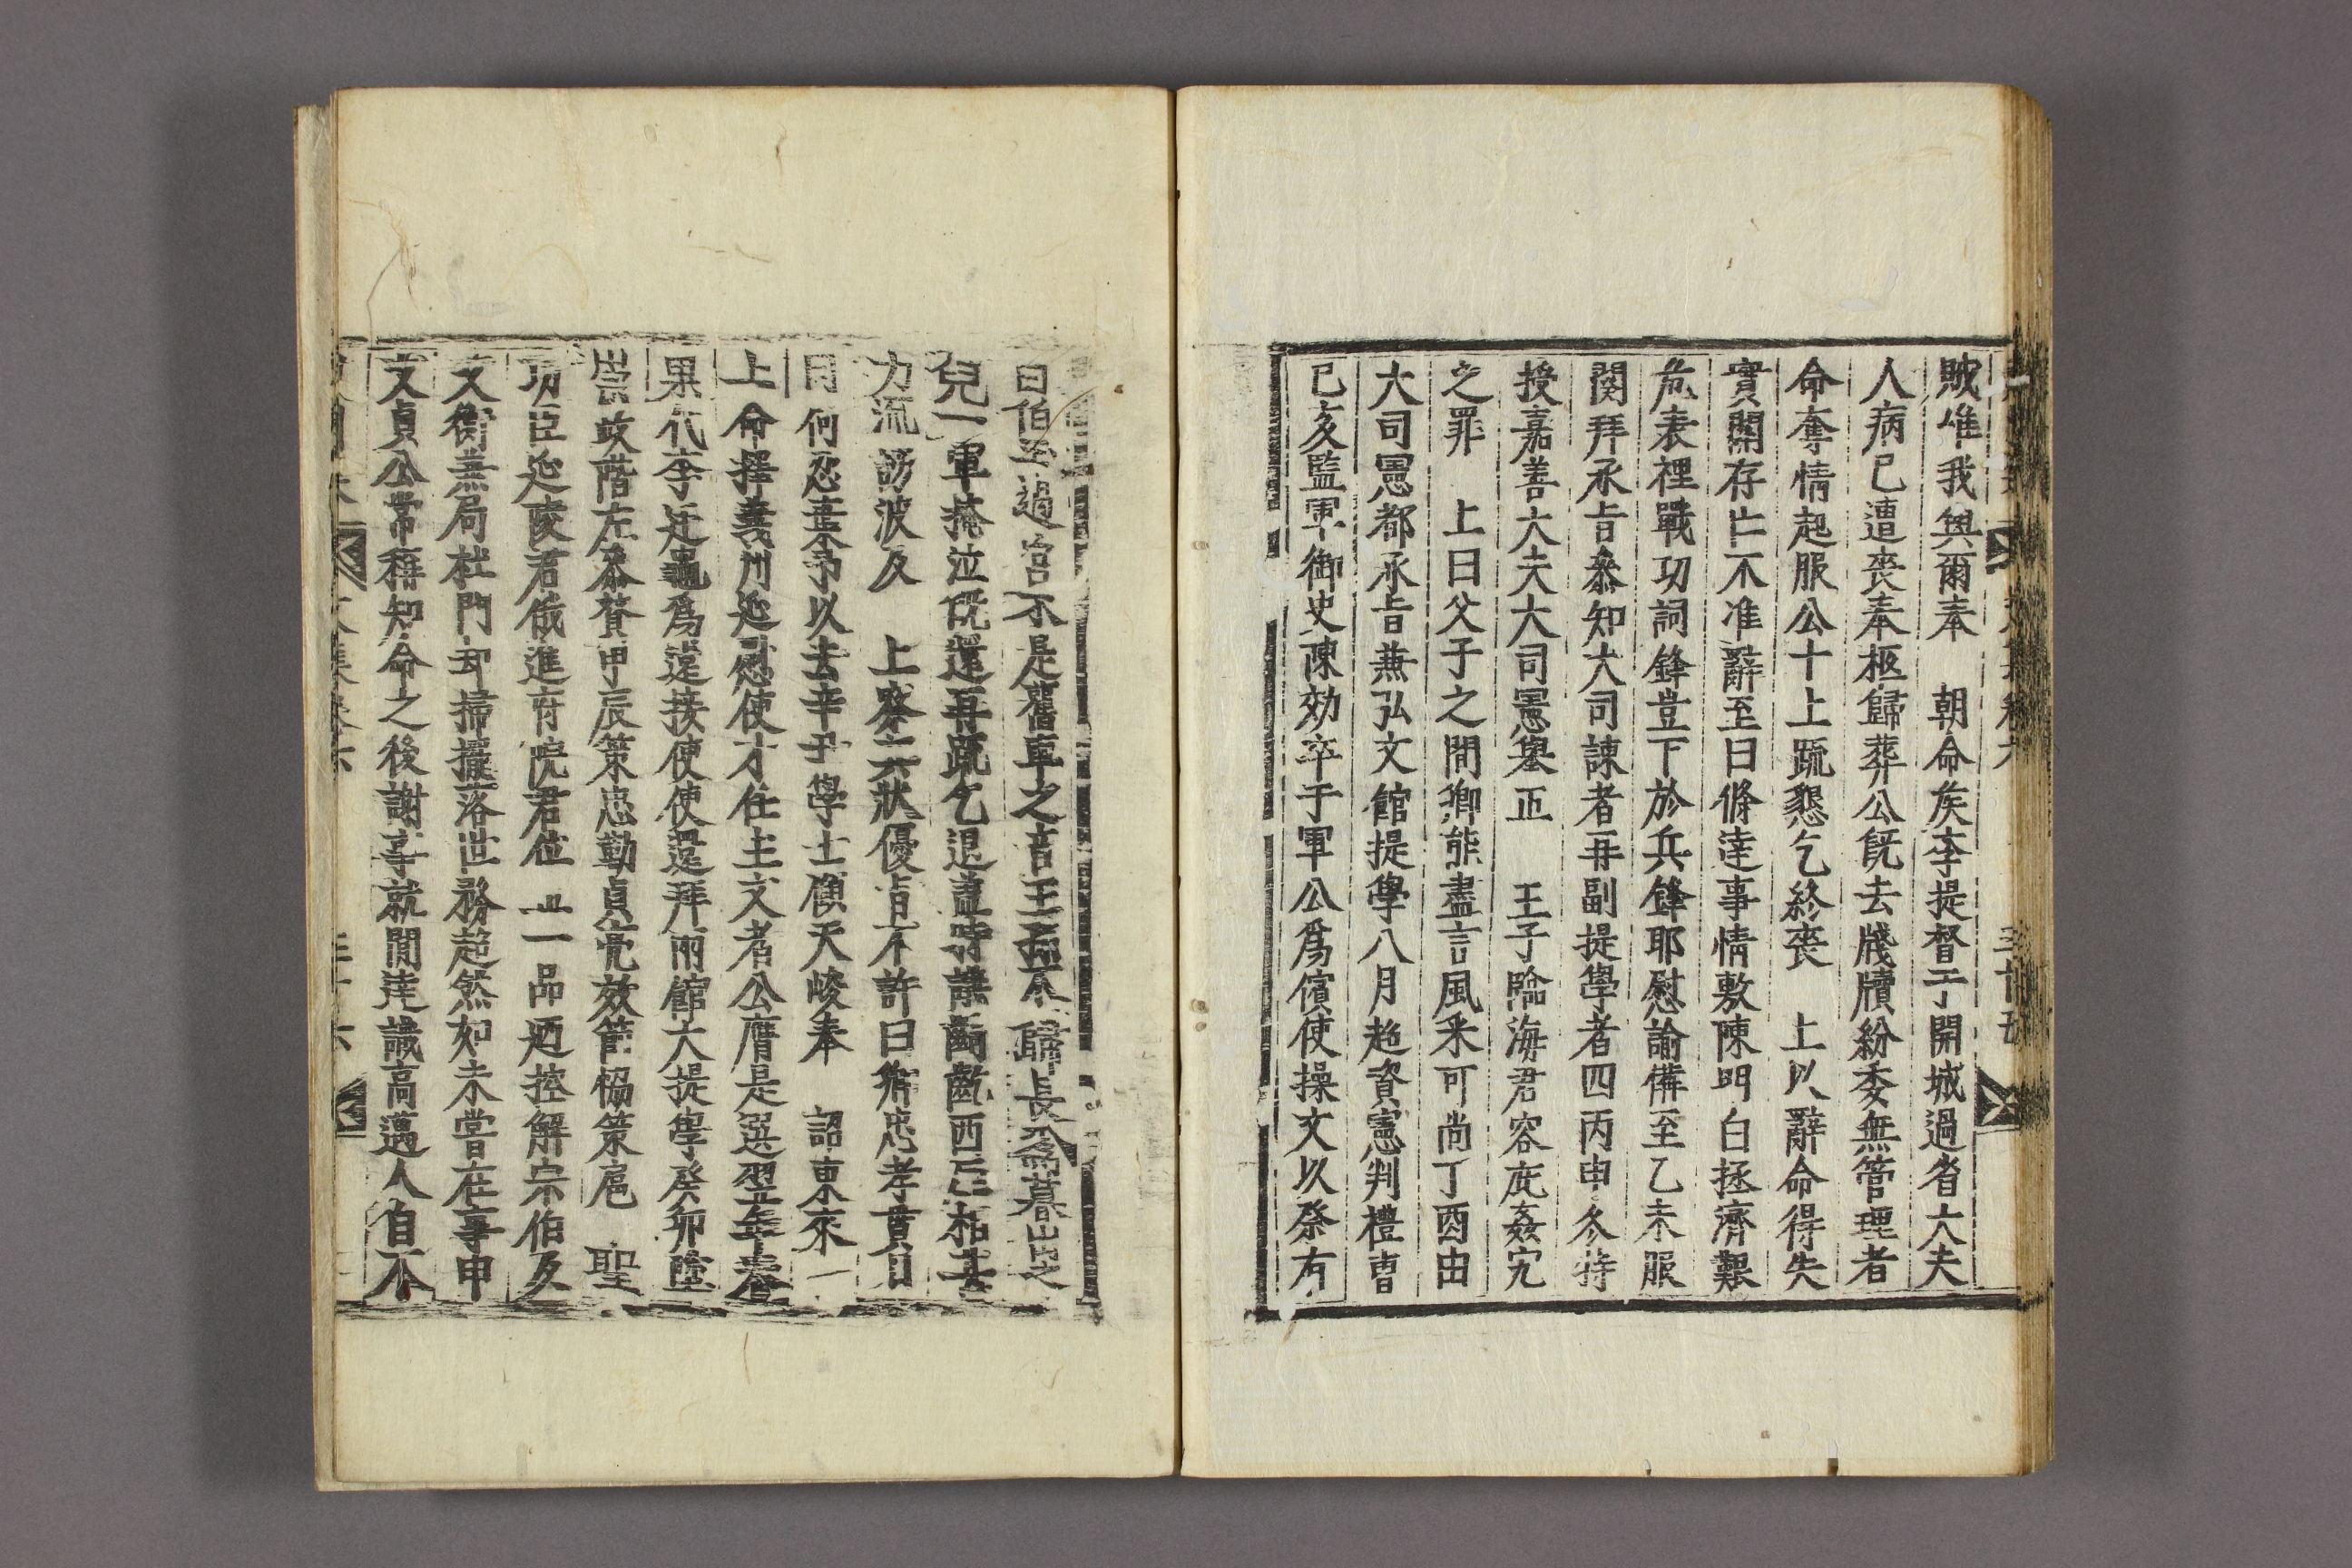 賊唯我與爾奉　朝命矣李提督于開城過者大夫
人病已遭喪奉柩歸葬公旣去牋牘紛委無管理者
命奪情起服公十上䟽懇乞終喪　上以辭命得失
實關存亡不准辭至曰條達事情敷陳明白拯濟艱
危表裡戰功詞鋒豈下於兵鋒耶慰諭備至乙未服
闋拜承旨叅知大司諫者再副提學者四丙申冬特
授嘉善大夫大司憲墨正　王子臨海君容庇姦宄
之罪　上曰父子之間卿能盡言風采可尚丁酉由
大司憲都承旨兼弘文館提學八月超資憲判禮曹
己亥監軍御史陳効卒于軍公爲儐使操文以祭有
曰伯 過宮不是舊車之音王孫不歸長 暮山之
兒一軍掩泣旣還再䟽乞退盖時議齮齕西 在其
力流謗波及　上察公狀優旨不許曰 忠孝貫日
月何忍棄予以去辛丑學士顧天峻奉　詔東來
上命擇義州延慰使才任主文者公膺是選翌年春
果代李廷龜爲遠接使使還拜兩館大提學癸卯陞
崇政階左叅贊甲辰策忠勤貞亮效節恊策扈　聖
功臣延陵君俄進府院君位正一品廼控解宗伯及
文衡兼局杜門却掃擺落世務超然如未嘗在事申
文貞公常稱知命之後謝事就閒達識高邁人自不